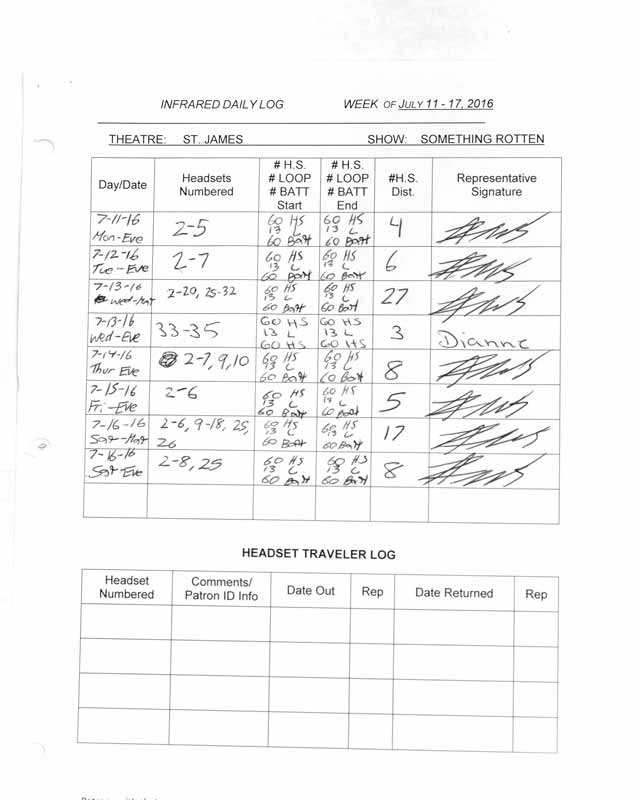 INFRARED DAILY LOG WEEK OF JULY 11 - 17, 2016
THEATRE: ST. JAMES SHOW: SOMETHING ROTTEN
Day/Date Headsets Numbered # H.S. # LOOP # BATT Start # H.S. # LOOP # BATT End #H.S. Dist. Representative Signature
7-11-16 Mon-Eve 2-5 60 HS 13 L 60 Batt 60 HS 13 L 60 Batt 4
7-12-16 Tue-Eve 2-7 60 HS 13 L 60 Batt 60 HS 13 L 60 Batt 6
7-13-16 Wed-Mat 2-20, 25-32 60 HS 13 L 60 Batt 60 HS 13 L 60 Batt 27
7-13-16 Wed-Eve 33-35 60 HS 13 L 60 HS 60 HS 13 L 60 HS 3 Dianne
7-14-16 Thur Eve 2-7, 9, 10 60 HS 13 L 60 Batt 60 HS 13 L 60 Batt 8
7-15-16 Fri-Eve 2-6 60 HS 13 L 60 Batt 60 HS 13 L 60 Batt 5
7-16-16 Sat-Mat 2-6, 9-18, 25, 26 60 HS 13 L 60 Batt 60 HS 13 L 60 Batt 17
7-16-16 Sat Eve 2-8, 25 60 HS 13 L 60 Batt 60 HS 13 L 60 Batt 8
HEADSET TRAVELER LOG
Headset Numbered Comments/ Patron ID Info Date Out Rep Date Returned Rep